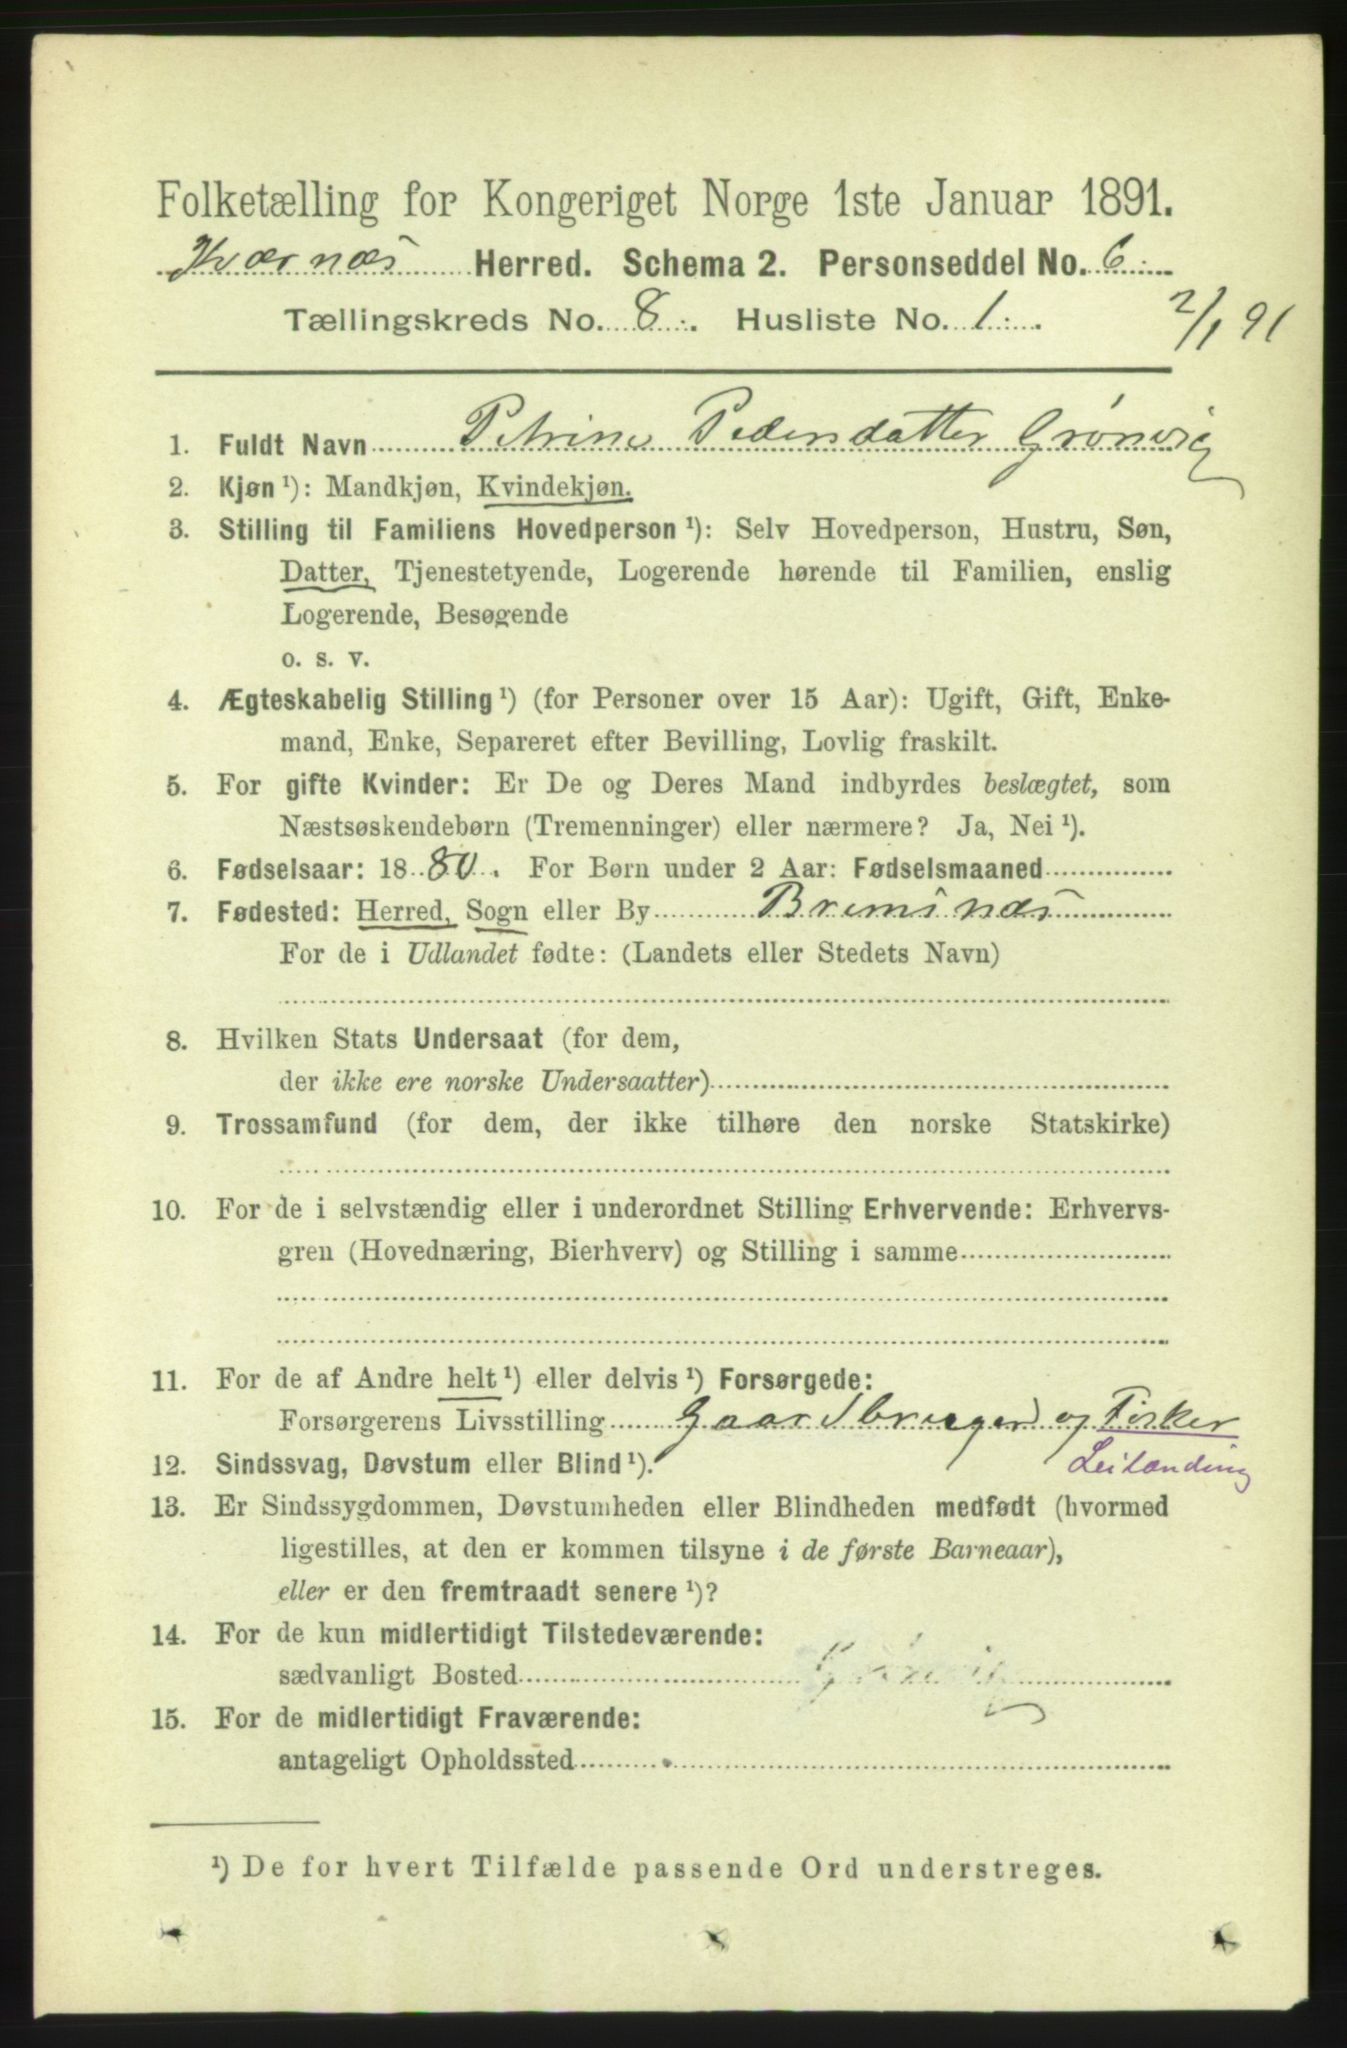 Folketælling for Kongeriget Norge 1ste Januar 1891.
Kværnæs Herred. Schema 2. Personseddel No. 6.
Tællingskreds No. 8. Husliste No. 1. 2/1 91
1. Fuldt Navn Petrine Pedersdatter Grønvig
2. Kjøn ¹): Mandkjøn, Kvindekjøn.
3. Stilling til Familiens Hovedperson ¹): Selv Hovedperson, Hustru, Søn,
Datter, Tjenestetyende, Logerende hørende til Familien, enslig
Logerende, Besøgende
o. s. v.
4. Ægteskabelig Stilling ¹) (for Personer over 15 Aar): Ugift, Gift, Enke-
mand, Enke, Separeret efter Bevilling, Lovlig fraskilt.
5. For gifte Kvinder: Er De og Deres Mand indbyrdes beslægtet, som
Næstsøskendebørn (Tremenninger) eller nærmere? Ja, Nei ¹).
6. Fødselsaar: 1880. For Børn under 2 Aar: Fødselsmaaned
7. Fødested: Herred, Sogn eller By Bremsnæs
For de i Udlandet fødte: (Landets eller Stedets Navn)
8. Hvilken Stats Undersaat (for dem,
der ikke ere norske Undersaatter)
9. Trossamfund (for dem, der ikke tilhøre den norske Statskirke)
10. For de i selvstændig eller i underordnet Stilling Erhvervende: Erhvervs-
gren (Hovednæring, Bierhverv) og Stilling i samme
11. For de af Andre helt ¹) eller delvis ¹) Forsørgede:
Forsørgerens Livsstilling Gaardbruger og Fisker
12. Sindssvag, Døvstum eller Blind ¹). Leilænding
13. Er Sindssygdommen, Døvstumheden eller Blindheden medfødt (hvormed
ligestilles, at den er kommen tilsyne i de første Barneaar),
eller er den fremtraadt senere ¹)?
14. For de kun midlertidigt Tilstedeværende:
sædvanligt Bosted
15. For de midlertidigt Fraværende:
antageligt Opholdssted
¹) De for hvert Tilfælde passende Ord understreges.